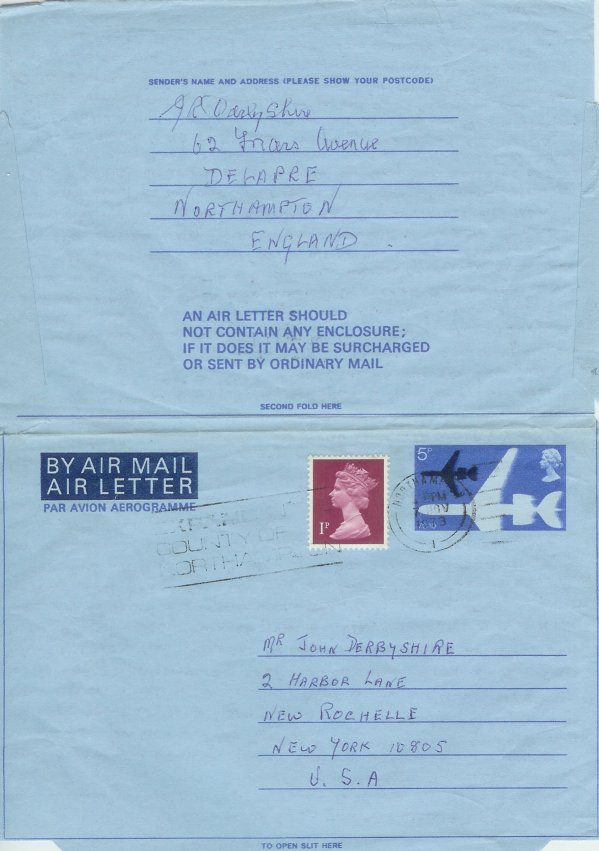 SENDER'S NAME AND ADDRESS (PLEASE SHOW YOUR POSTCODE)
Derbyshire
62 Friars Avenue
DELAPRE
NORTHAMPTON
ENGLAND
AN AIR LETTER SHOULD
NOT CONTAIN ANY ENCLOSURE;
IF IT DOES IT MAY BE SURCHARGED
OR SENT BY ORDINARY MAIL
SECOND FOLD HERE
BY AIR MAIL
AIR LETTER
PAR AVION AEROGRAMME
1P
5P
COUNTY OF
MR JOHN DERBYSHIRE
2 HARBOR LANE
NEW ROCHELLE
NEW YORK 10805
U.S.A
TO OPEN SLIT HERE